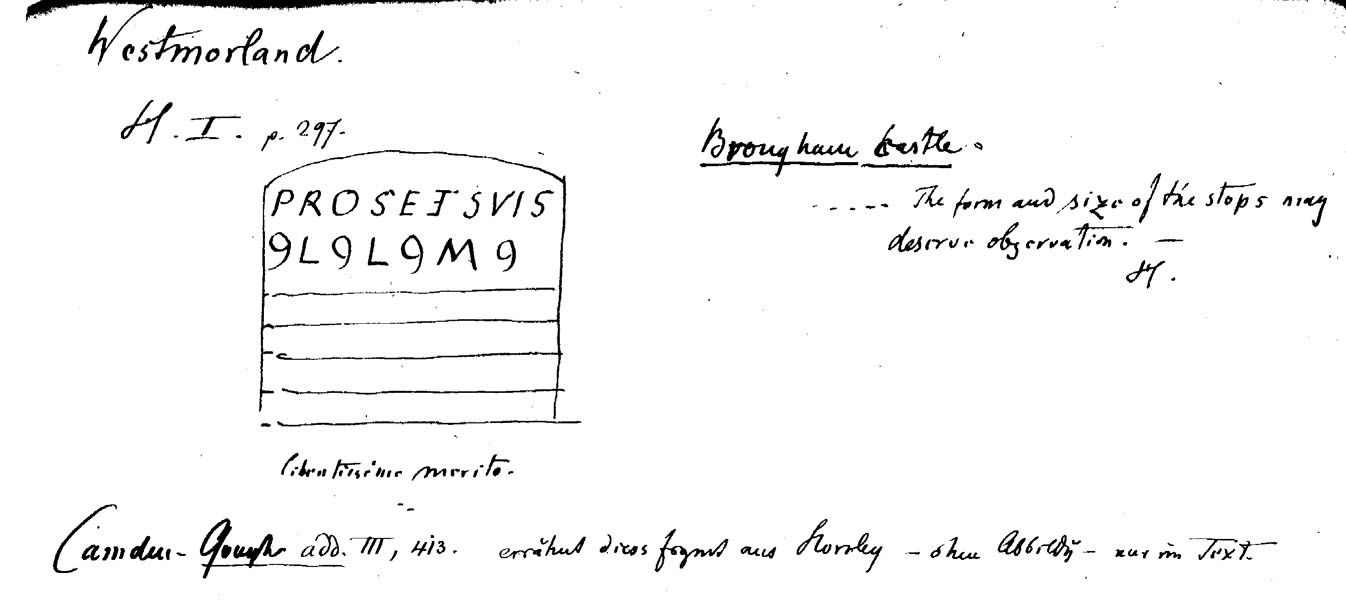 Westmorland.
H. I. p. 297.
PRO SE ET SVIS
9L9L9M9
libentissime merito.
Brougham Castle.
..... The form and size of the stops may
deserve observation. —
H.
Camden-Gough add. III, 413. erwähnt dieses fragmt aus Horsley – ohne Abbildg – nur im Text.